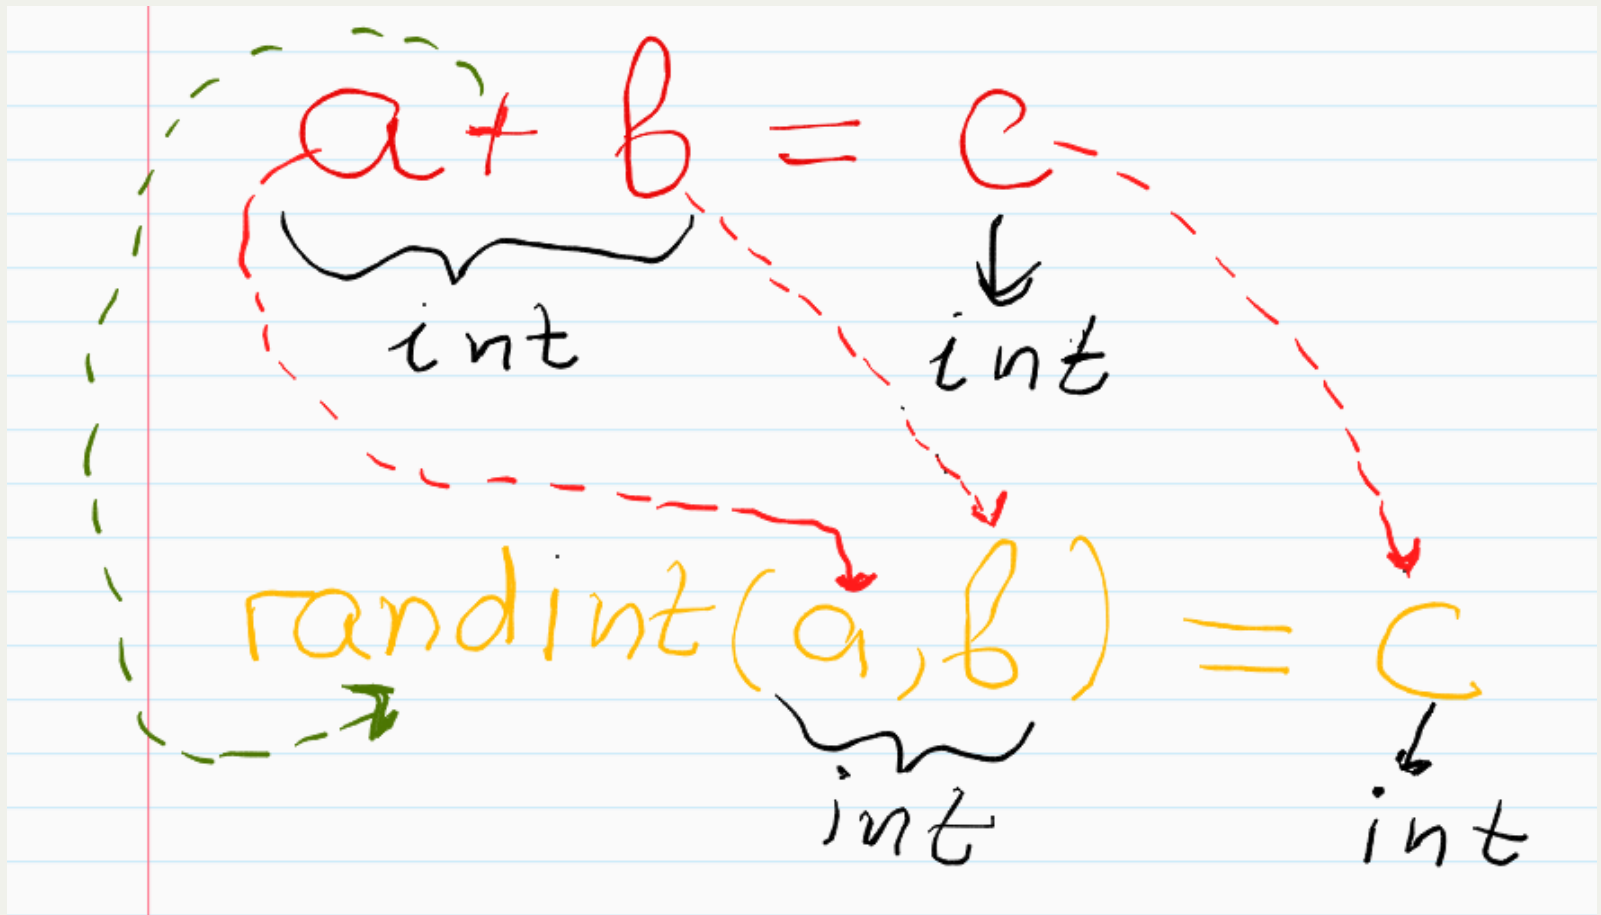 a + b = c
int int
randint(a,b) = c
int int